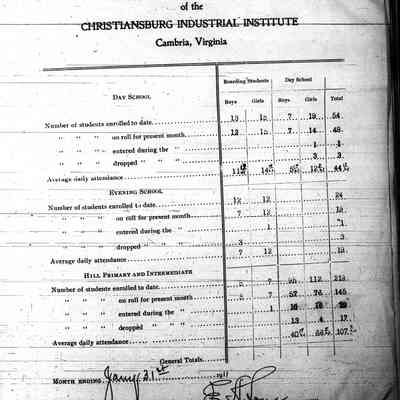 of the
CHRISTIANSBURG INDUSTRIAL INSTITUTE
Cambria, Virginia
Boarding Students Day School
DAY SCHOOL Boys Girls Boys Girls Total
Number of students enrolled to date 13 15 7 19 54
" " " on roll for present month 12 15 7 14 48
" " " entered during the " 1 1
" " " dropped " " " 3 3
Average daily attendance
EVENING SCHOOL
Number of students enrolled to date 12 12 24
" " " on roll for present month 7 12 19
" " " entered during the " 1 1
" " " dropped " " " 3 3
Average daily attendance 7 12 19
HILL PRIMARY AND INTERMEDIATE
Number of students enrolled to date 5 7 95 112 219
" " " on roll for present month 5 7 57 76 145
" " " entered during the " 1
" " " dropped " " " 13 4 17
Average daily attendance
General Totals
MONTH ENDING Jany 31st 1911